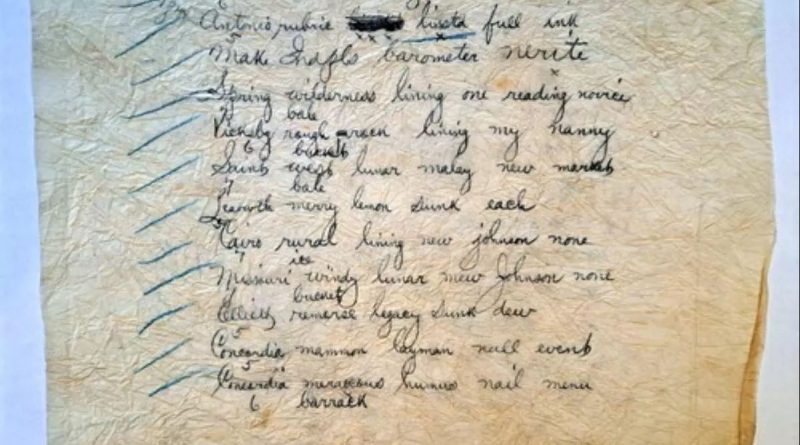 Antonio rubric linsta full ink
x x x x
5
Make Indpls barometer nerite
x
Spring wilderness lining one reading novice
bale
Vicksbg rough rack lining my nanny
6 bucket
Saint west lunar malay new market
7 bale
Leavwth merry lemon sunk each
Cairo rural lining new johnson none
7 ice
Missouri windy lunar mew Johnson none
bucket
Elliott removse legacy sunk dew
5
Concordia mammon layman null event
5
Concordia merraccous humus nail menu
6 barrack